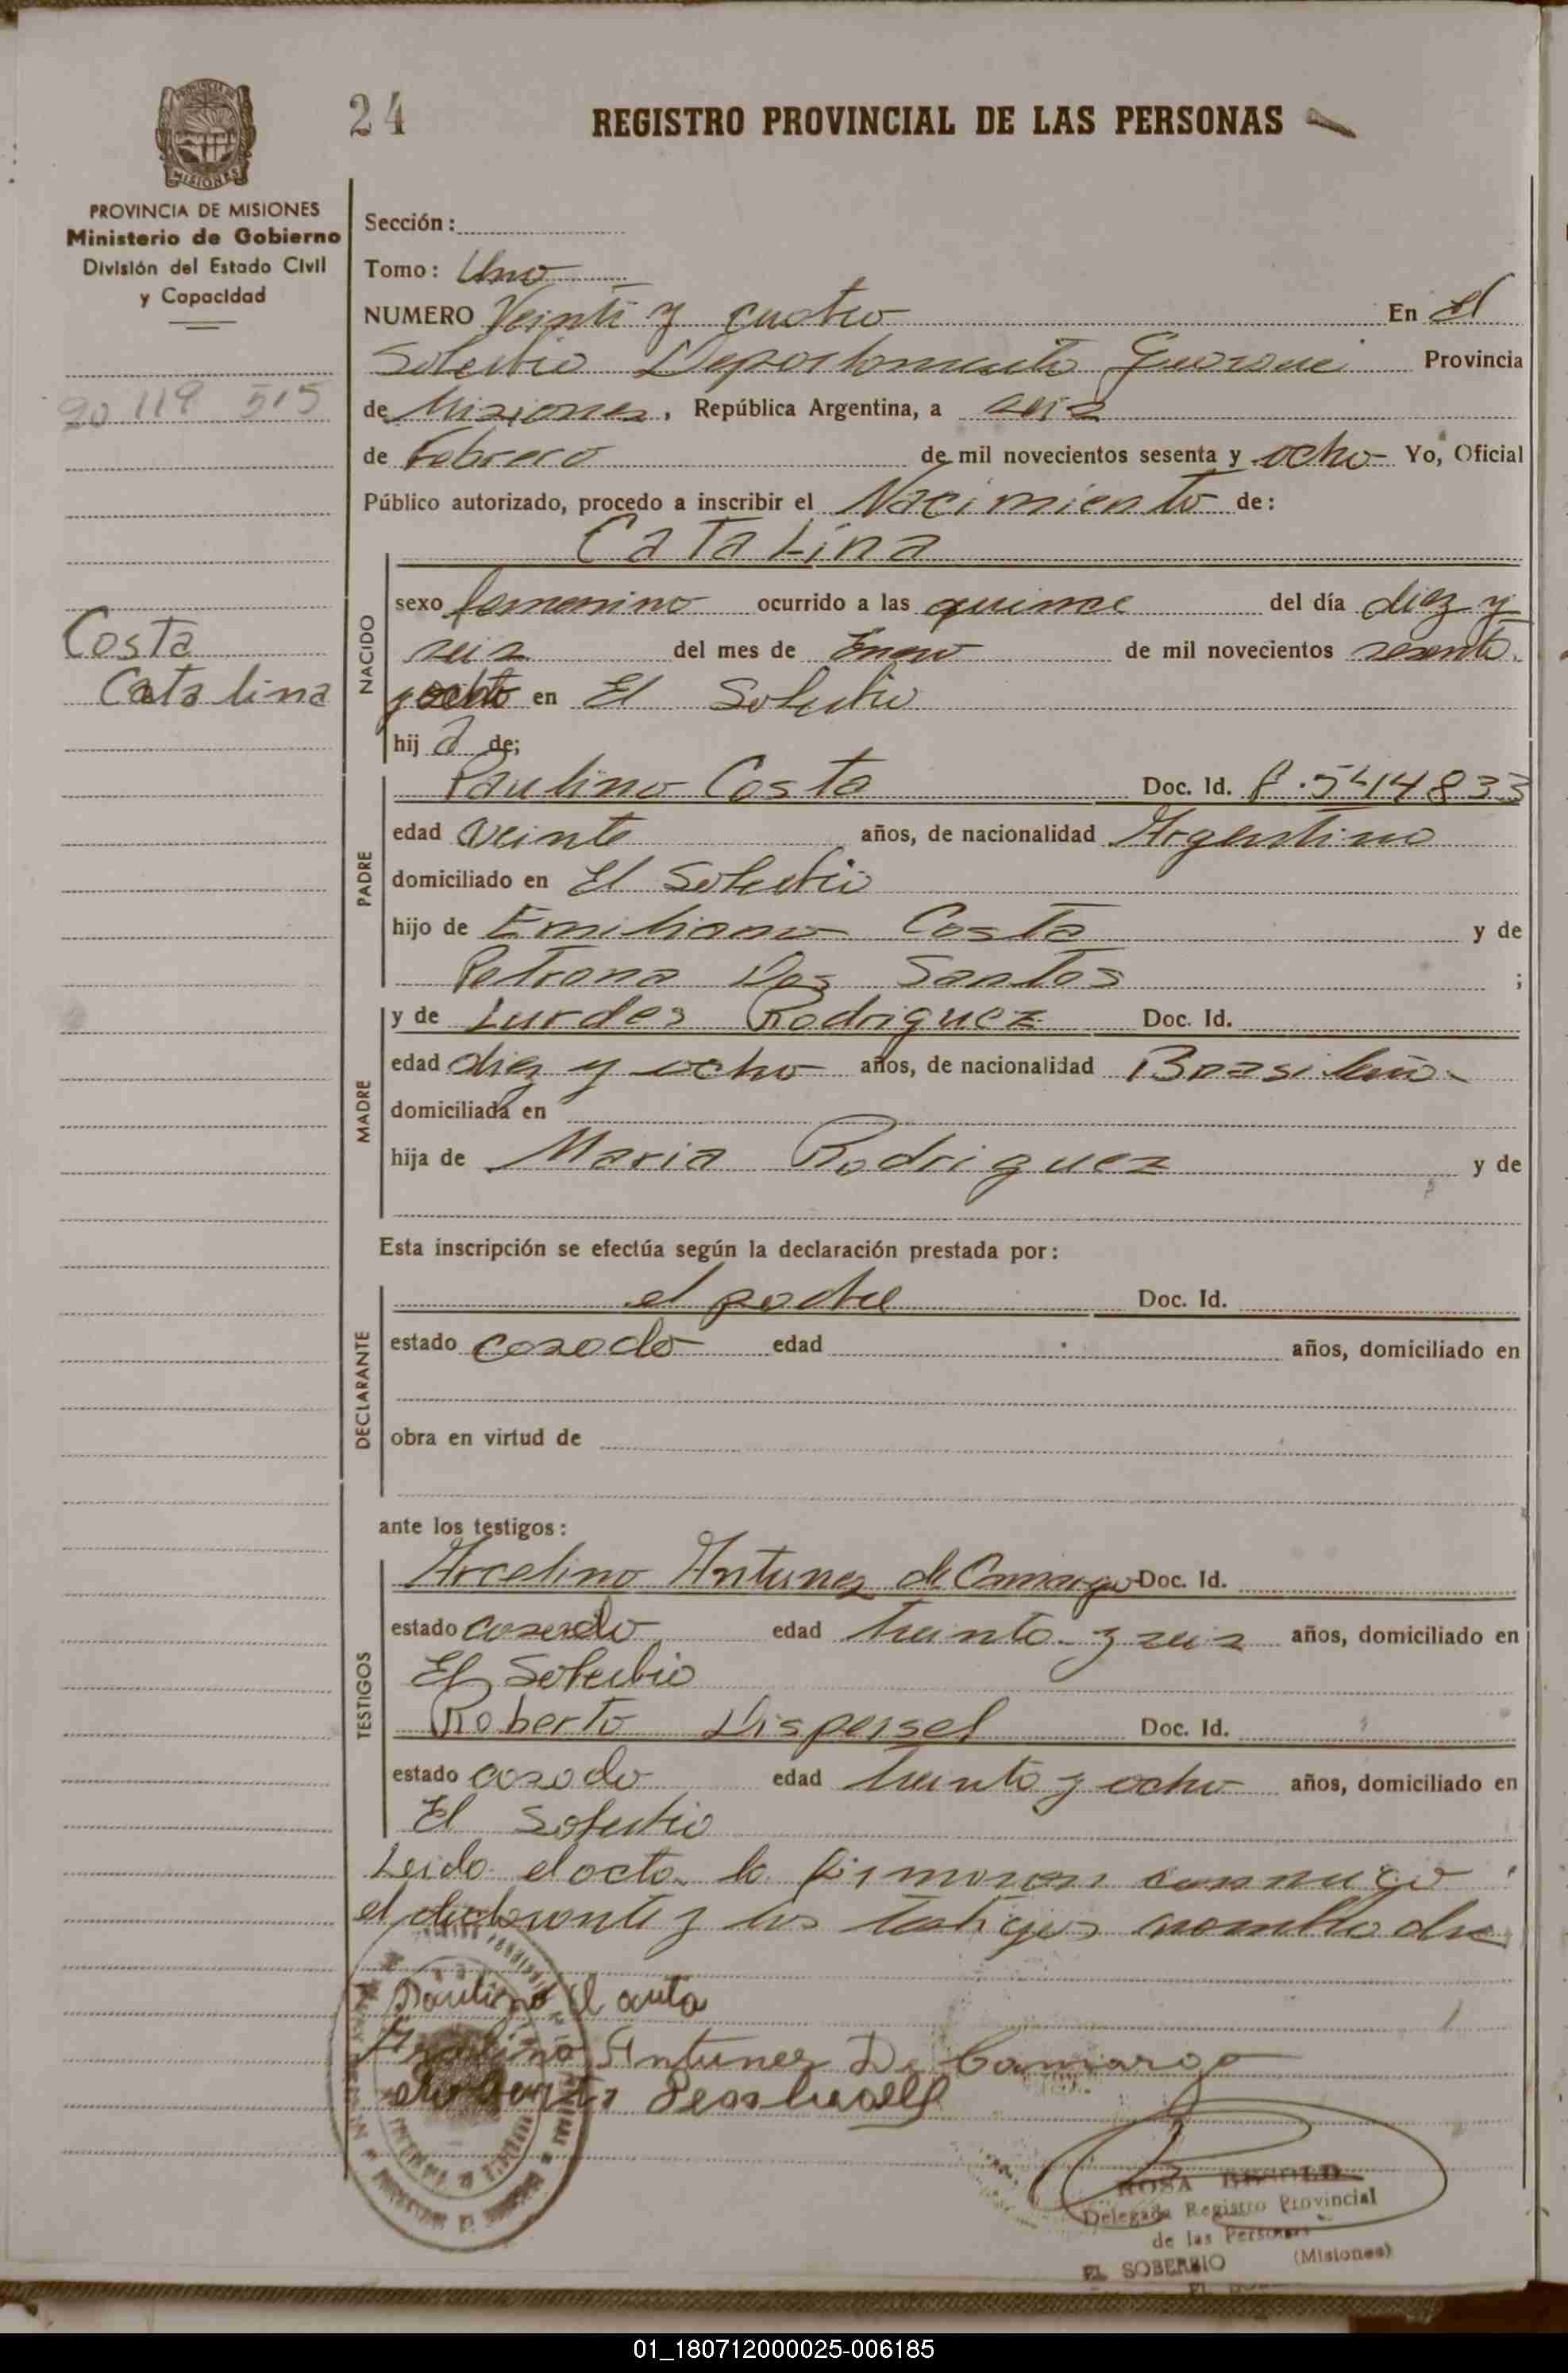 24
REGISTRO PROVINCIAL DE LAS PERSONAS
MISIONES
PROVINCIA DE MISIONES
Ministerio de Gobierno
División del Estado Civil
y Capacidad
20 119 515
Costa
Catalina
Sección:
Tomo: Uno
NUMERO Veinti y cuatro En El
Soberbio Departamento Guarani Provincia
de Misiones, República Argentina, a seis
de Febrero de mil novecientos sesenta y ocho Yo, Oficial
Público autorizado, procedo a inscribir el Nacimiento de:
Catalina
NACIDO
sexo femenino ocurrido a las quince del día diez y
seis del mes de Enero de mil novecientos sesenta
y ocho en El Soberbio
hij a de;
PADRE
Paulino Costa Doc. Id. 8.5414833
edad veinte años, de nacionalidad Argentino
domiciliado en El Soberbio
hijo de Emiliano Costa y de
Petrona Dos Santos ;
MADRE
y de Lurdes Rodriguez Doc. Id.
edad diez y ocho años, de nacionalidad Brasileña
domiciliada en
hija de Maria Rodriguez y de
Esta inscripción se efectúa según la declaración prestada por:
DECLARANTE
el padre Doc. Id.
estado casado edad años, domiciliado en
obra en virtud de
ante los testigos:
TESTIGOS
Arcelino Antunez de Camargo Doc. Id.
estado casado edad treinta y seis años, domiciliado en
El Soberbio
Roberto Dispersel Doc. Id.
estado casado edad treinta y ocho años, domiciliado en
El Soberbio
Leido el acta la firmaron conmigo
el declarante y los testigos
Paulino
Antunez De Camargo
ROSA
Delegada Registro Provincial
de las Personas
EL SOBERBIO (Misiones)
01_180712000025-006185